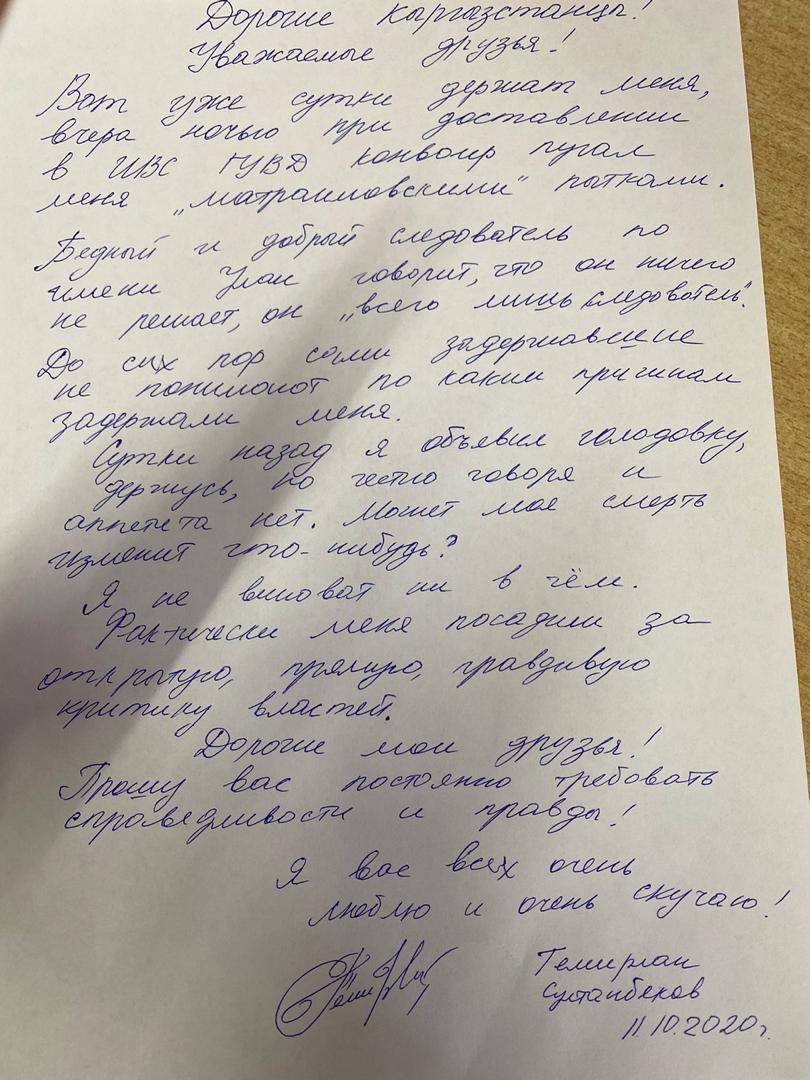 Дорогие кыргызстанцы!
Уважаемые друзья!
Вот уже сутки держат меня,
вчера ночью при доставлении
в ИВС ГУВД конвоир пугал
меня „матраимовскими" пытками.
Бедный и добрый следователь по
имени Улан говорит, что он ничего
не решает, он „всего лишь следователь".
До сих пор сами задержавшие
не понимают по каким причинам
задержали меня.
Сутки назад я объявил голодовку,
держусь, но честно говоря и
аппетета нет. Может моя смерть
изменит что-нибудь?
Я не виноват ни в чём.
Фактически меня посадили за
открытую, прямую, правдивую
критику властей.
Дорогие мои друзья!
Прошу вас постоянно требовать
справедливости и правды!
Я вас всех очень
люблю и очень скучаю!
Темирлан
Султанбеков
11.10.2020г.